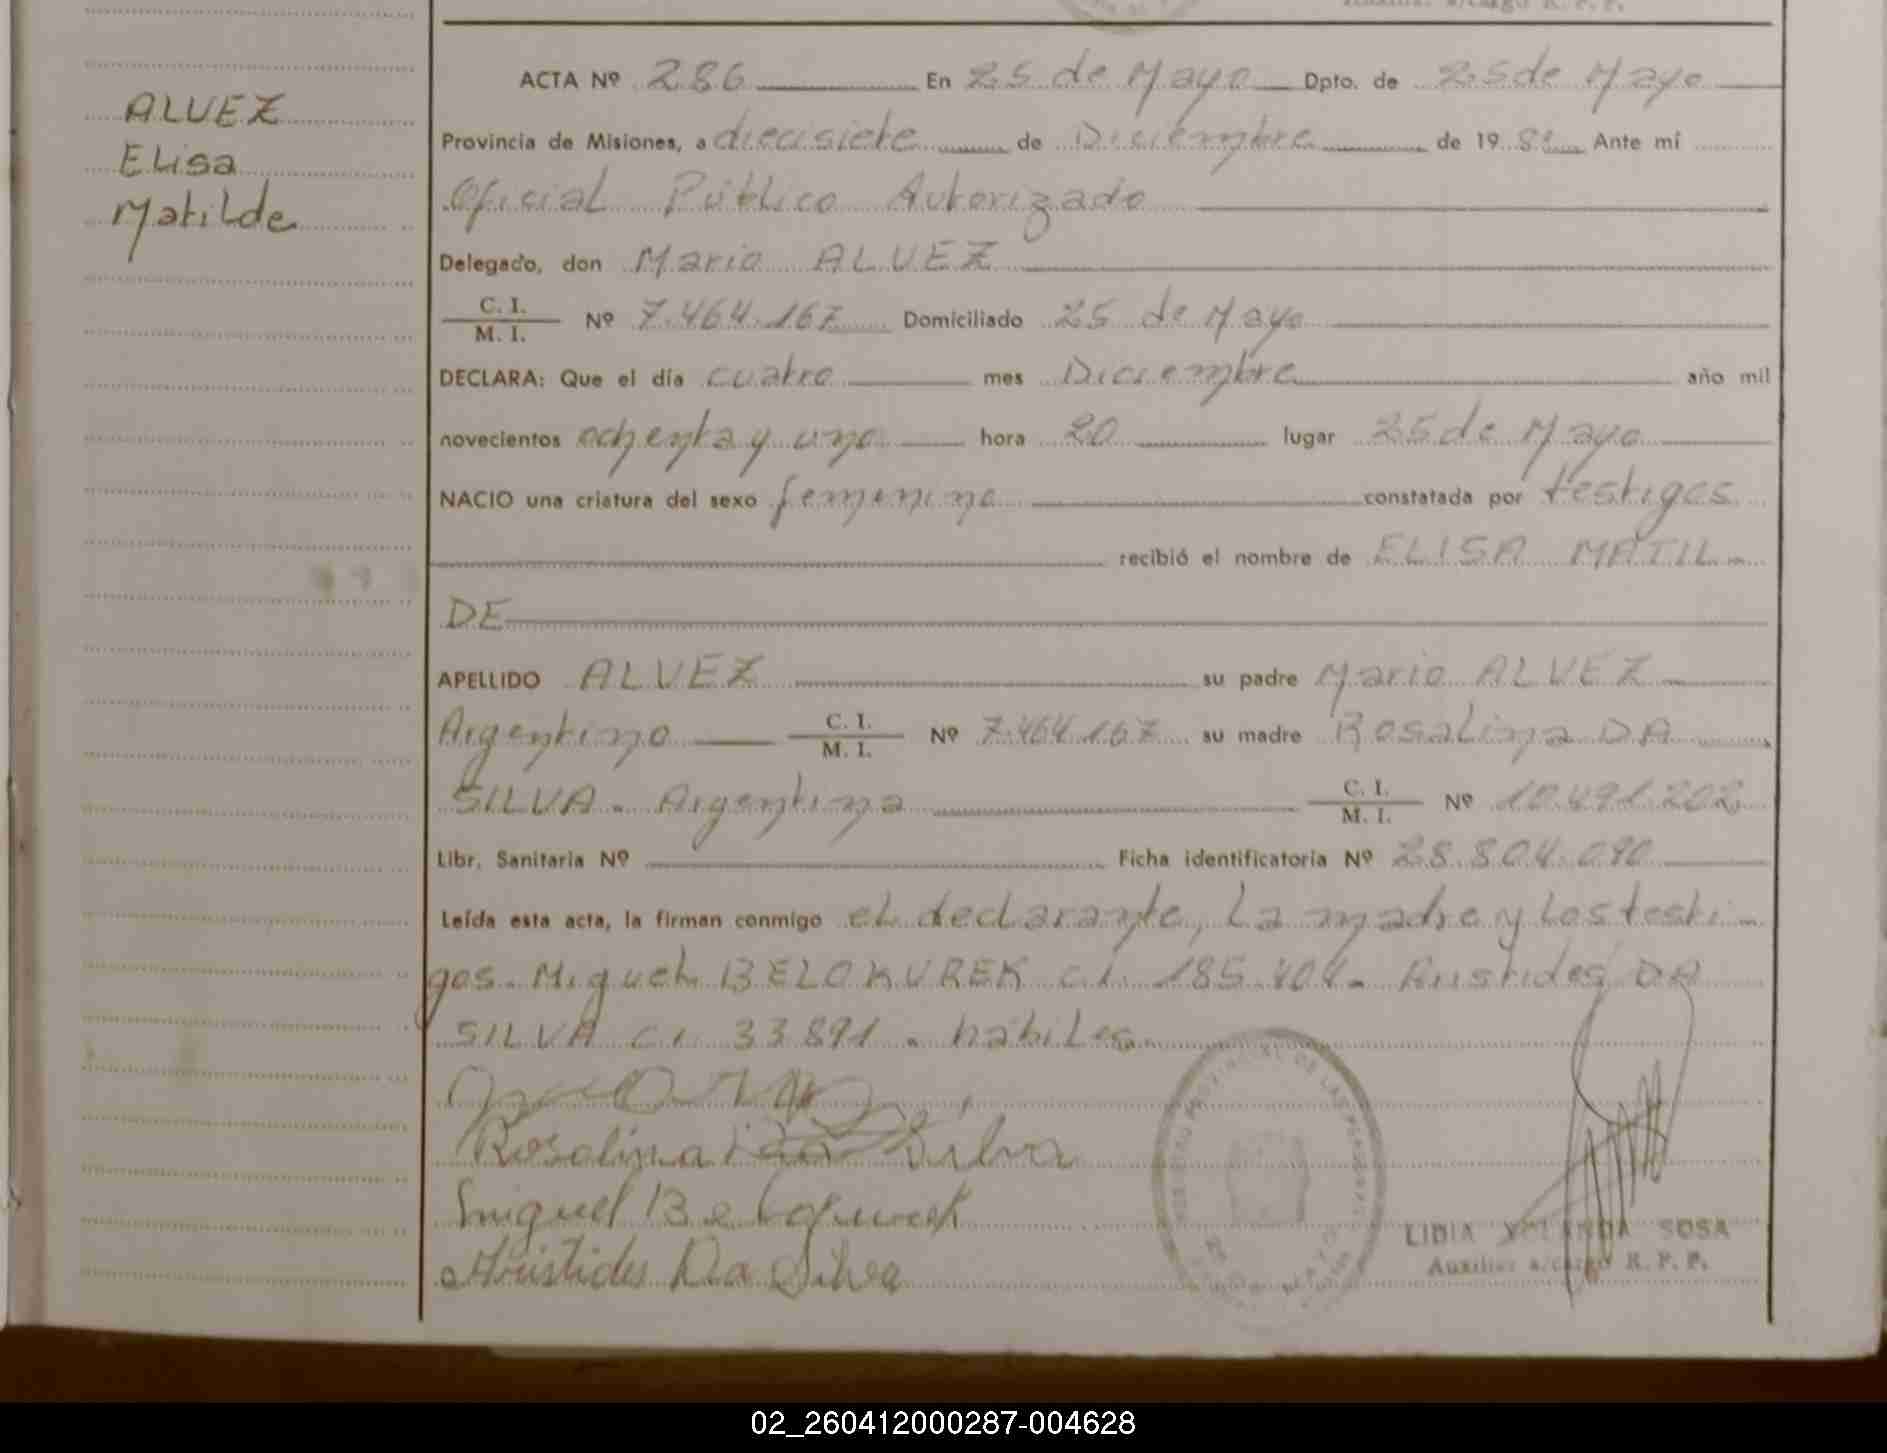 ALVEZ
Elisa
Matilde
ACTA Nº 286 En 25 de Mayo Dpto. de 25 de Mayo
Provincia de Misiones, a diecisiete de Diciembre de 1981 Ante mí
Oficial Público Autorizado
Delegado, don Mario ALVEZ
C. I.
M. I. Nº 7.464.167 Domiciliado 25 de Mayo
DECLARA: Que el día cuatro mes Diciembre año mil
novecientos ochenta y uno hora 20 lugar 25 de Mayo
NACIO una criatura del sexo femenino constatada por testigos
recibió el nombre de ELISA MATIL-
DE
APELLIDO ALVEZ su padre Mario ALVEZ
Argentino C. I. M. I. Nº 7.464.167 su madre Rosalina DA
SILVA. Argentina C. I. M. I. Nº 10.491.202
Libr. Sanitaria Nº Ficha identificatoria Nº 28.804.090
Leída esta acta, la firman conmigo el declarante, la madre y los testi-
gos. Miguel BELOKUREK c.i. 185.404. Aristides DA
SILVA c.i. 33.891. hábiles.
Rosalina da Silva
Miguel Belokurek
Aristides Da Silva
PROVINCIAL DE LAS PERSONAS
LIDIA YOLANDA SOSA
Auxiliar a/cargo R. P. P.
02_260412000287-004628